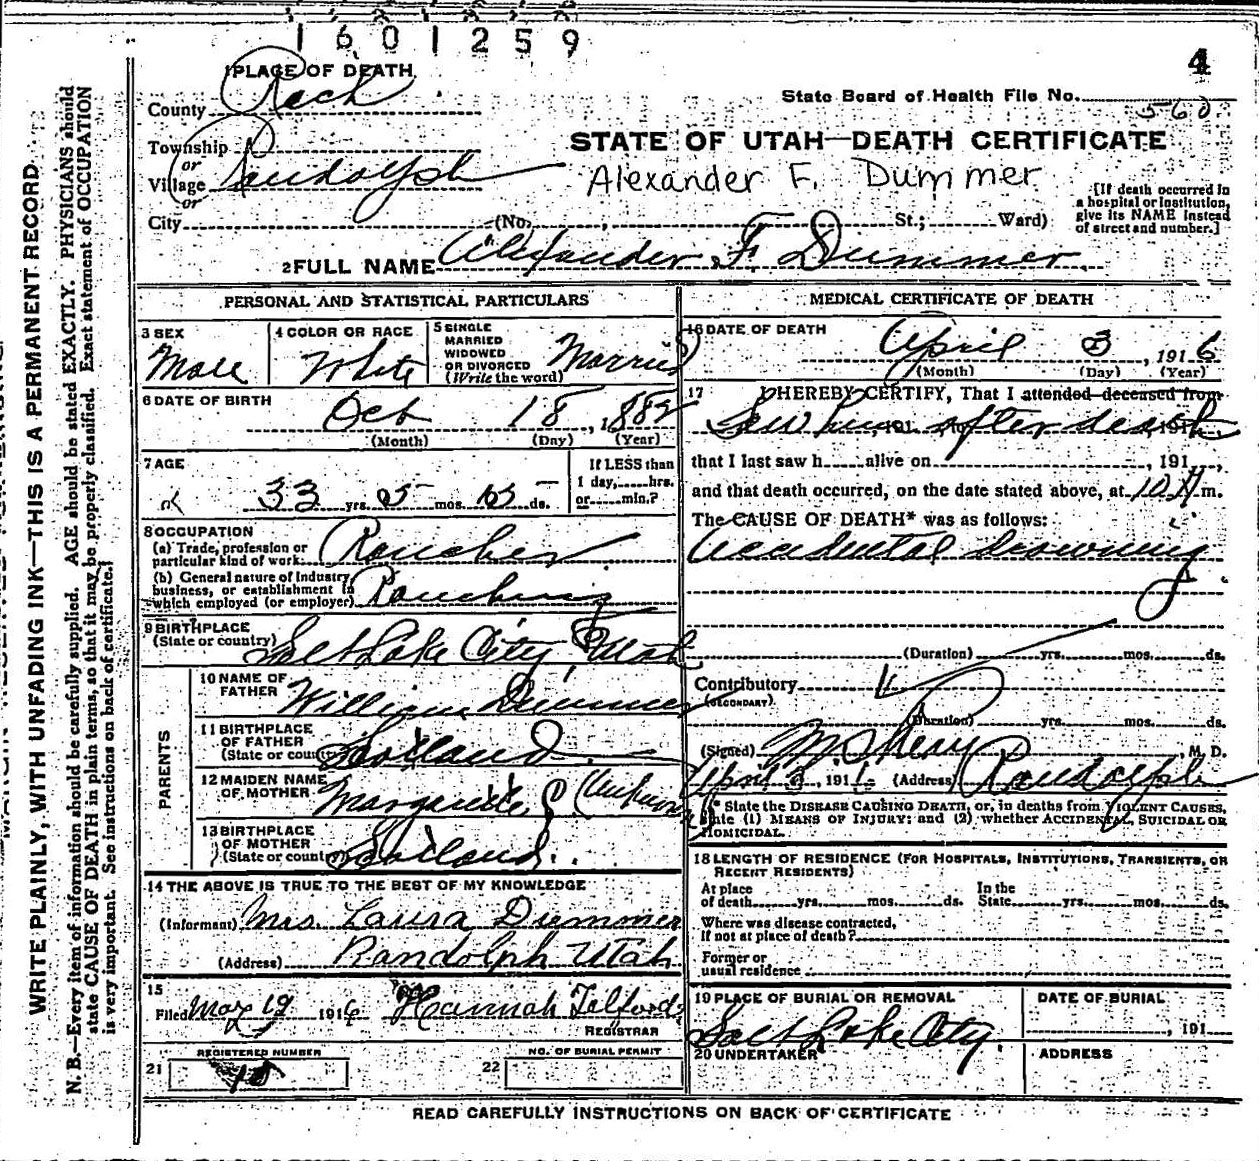 1601259
4
PLACE OF DEATH
State Board of Health File No. 560
County Rich
Township
or
Village Randolph
or
City (No. , St.; Ward)
STATE OF UTAH—DEATH CERTIFICATE
Alexander F. Dummer
[If death occurred in
a hospital or institution,
give its NAME instead
of street and number.]
2 FULL NAME Alexander F. Dummer
WRITE PLAINLY, WITH UNFADING INK—THIS IS A PERMANENT RECORD
N. B.—Every item of information should be carefully supplied. AGE should be stated EXACTLY. PHYSICIANS should
state CAUSE OF DEATH in plain terms, so that it may be properly classified. Exact statement of OCCUPATION
is very important. See instructions on back of certificate.]
PERSONAL AND STATISTICAL PARTICULARS
3 SEX
Male
4 COLOR OR RACE
White
5 SINGLE
MARRIED
WIDOWED
OR DIVORCED
(Write the word) Married
6 DATE OF BIRTH
Oct 18, 1882
(Month) (Day) (Year)
7 AGE
33 yrs. 5 mos. 15 ds.
If LESS than
1 day, hrs.
or min.?
8 OCCUPATION
(a) Trade, profession or
particular kind of work Rancher
(b) General nature of Industry,
business, or establishment in
which employed (or employer) Ranching
9 BIRTHPLACE
(State or country) Salt Lake City, Utah
PARENTS
10 NAME OF
FATHER William Dummer
11 BIRTHPLACE
OF FATHER
(State or country) Scotland
12 MAIDEN NAME
OF MOTHER Margarette (Unknown)
13 BIRTHPLACE
OF MOTHER
(State or country) Scotland
14 THE ABOVE IS TRUE TO THE BEST OF MY KNOWLEDGE
(Informant) Mrs. Laura Dummer
(Address) Randolph Utah
15
Filed May 19 1916 Hannah Telford
REGISTRAR
21 REGISTERED NUMBER
22 NO. OF BURIAL PERMIT
MEDICAL CERTIFICATE OF DEATH
16 DATE OF DEATH
April 3, 1916
(Month) (Day) (Year)
17 I HEREBY CERTIFY, That I attended deceased from
Saw him after death
that I last saw h alive on , 191 ,
and that death occurred, on the date stated above, at 10 A m.
The CAUSE OF DEATH* was as follows:
Accidental drowning
(Duration) yrs. mos. ds.
Contributory
(SECONDARY)
(Duration) yrs. mos. ds.
(Signed) , M. D.
April 3, 1916 (Address) Randolph
* State the DISEASE CAUSING DEATH, or, in deaths from VIOLENT CAUSES,
state (1) MEANS OF INJURY; and (2) whether ACCIDENTAL, SUICIDAL OR
HOMICIDAL.
18 LENGTH OF RESIDENCE (FOR HOSPITALS, INSTITUTIONS, TRANSIENTS, OR
RECENT RESIDENTS)
At place
of death yrs. mos. ds.
In the
State yrs. mos. ds.
Where was disease contracted,
If not at place of death?
Former or
usual residence
19 PLACE OF BURIAL OR REMOVAL
Salt Lake City
DATE OF BURIAL
, 191
20 UNDERTAKER
ADDRESS
READ CAREFULLY INSTRUCTIONS ON BACK OF CERTIFICATE